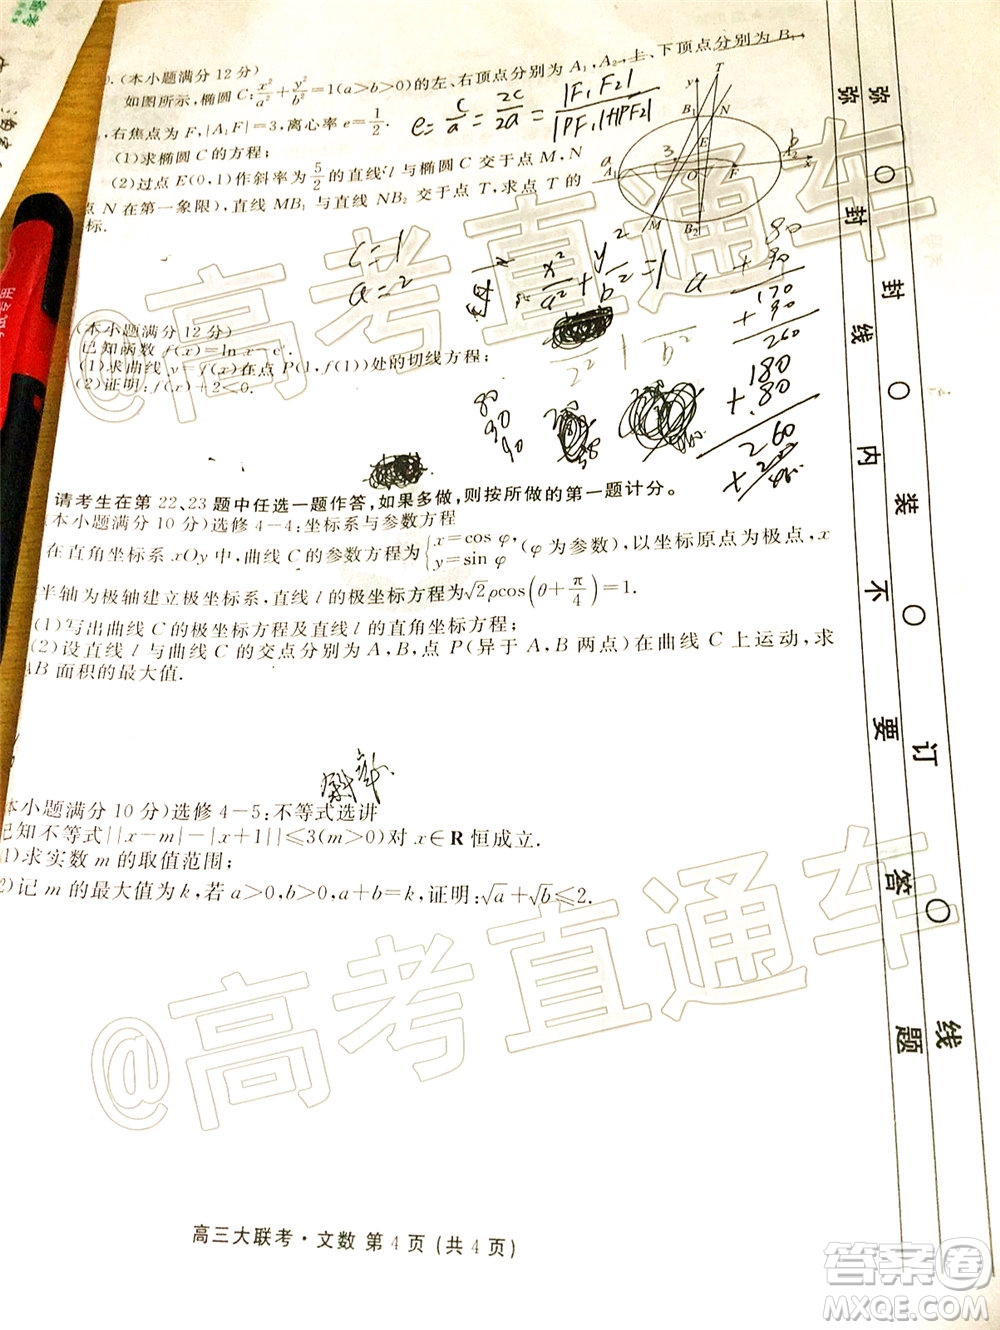 (本小题满分12分)
如图所示,椭圆C:x²/a²+y²/b²=1(a>b>0)的左、右顶点分别为A₁,A₂,上、下顶点分别为B₁,
,右焦点为F,|A₁F|=3,离心率e=1/2.
(1)求椭圆C的方程;
(2)过点E(0,1)作斜率为5/2的直线l与椭圆C交于点M,N
点N在第一象限),直线MB₁与直线NB₂交于点T,求点T的
标.
e=c/a=2c/2a=|F₁F₂|/|PF₁|+|PF₂|
y T
B₁ N
E
A₁ O F x
M B₂
c=1
a=2
x²/a²+y²/b²=1
80
+90
170
+90
260
180
+80
260
80
90
90
(本小题满分12分)
已知函数f(x)=ln x-eˣ.
(1)求曲线y=f(x)在点P(1,f(1))处的切线方程;
(2)证明:f(x)+2<0.
请考生在第22、23题中任选一题作答,如果多做,则按所做的第一题计分。
(本小题满分10分)选修4-4:坐标系与参数方程
在直角坐标系xOy中,曲线C的参数方程为{x=cos φ, y=sin φ (φ为参数),以坐标原点为极点,x
半轴为极轴建立极坐标系,直线l的极坐标方程为√2ρcos(θ+π/4)=1.
(1)写出曲线C的极坐标方程及直线l的直角坐标方程;
(2)设直线l与曲线C的交点分别为A,B,点P(异于A,B两点)在曲线C上运动,求
AB面积的最大值.
本小题满分10分)选修4-5:不等式选讲
已知不等式||x-m|-|x+1||≤3(m>0)对x∈R恒成立.
(1)求实数m的取值范围;
2)记m的最大值为k,若a>0,b>0,a+b=k,证明:√a+√b≤2.
高三大联考·文数 第4页(共4页)
弥 封 线 内 不 要 答 题
弥 封 装 订 线
@高考直通车
@高考直通车
答案圈
MXQE.COM